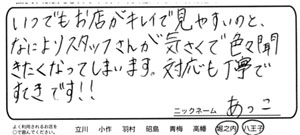 いつでもお店がキレイで見やすいのと、
なによりスタッフさんが気さくで色々聞
きたくなってしまいます。対応も丁寧で
すてきです!!
ニックネーム あっこ
よく利用されるお店を
○で囲んでください 立川 小作 羽村 昭島 青梅 高幡 堀之内 八王子